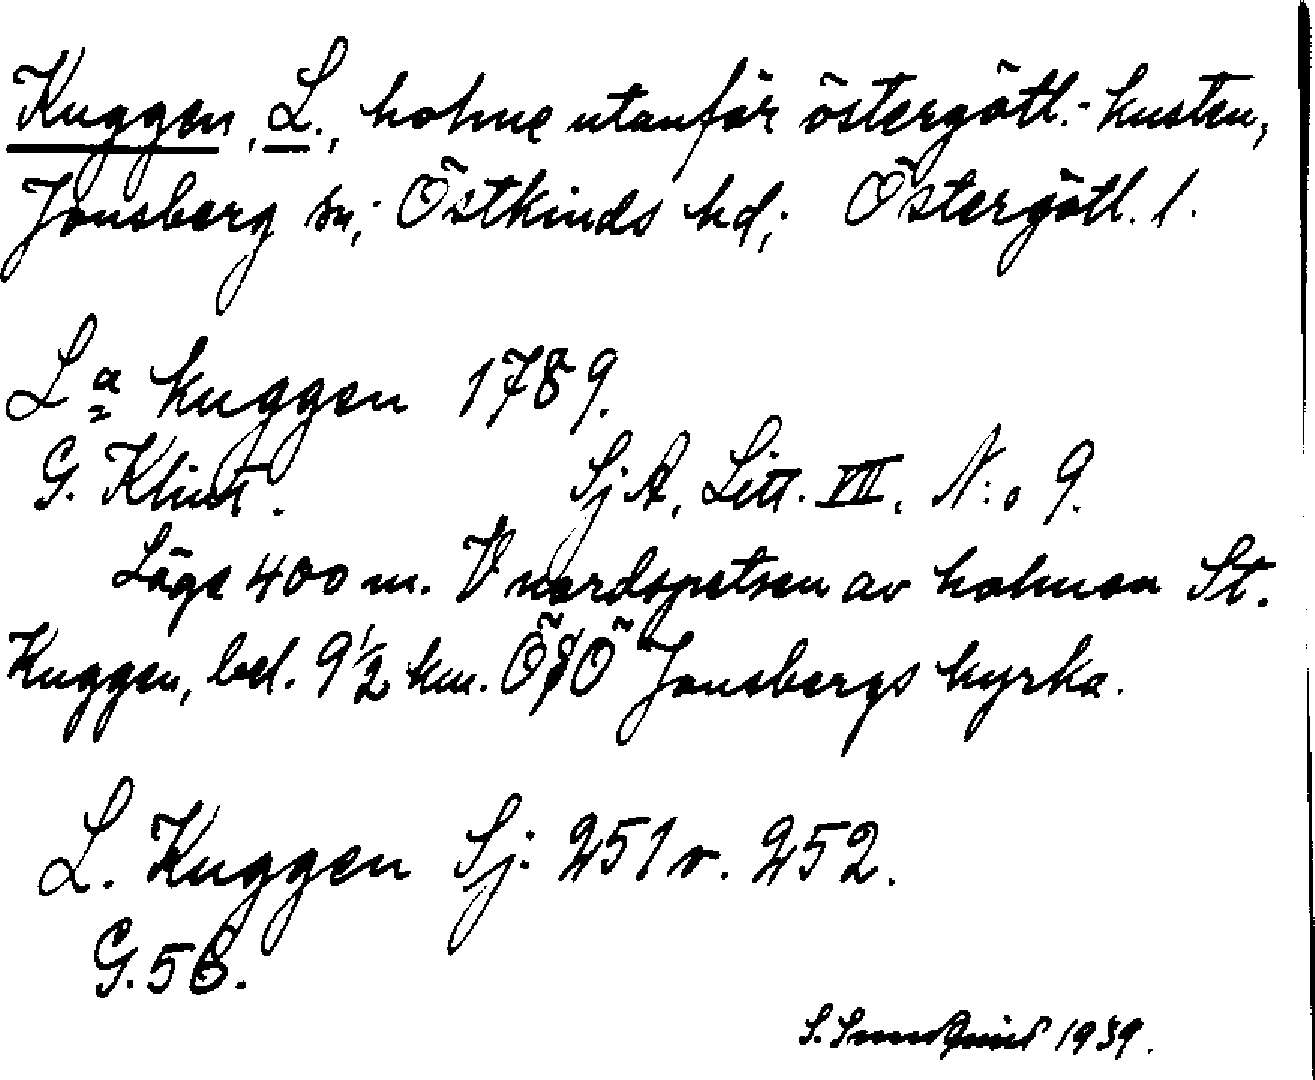 Kuggen, L., holme utanför östergötl.-kusten,
Jonsberg sn; Östkinds hd; Östergötl. l.
La Kuggen 1789.
G. Klint. SjA, Litt. VIII. N:o 9.
Läge 400 m. V nordspetsen av holmen St.
Kuggen, bel. 9 1/2 km. ÖSÖ Jonsbergs kyrka.
L. Kuggen Sj. 251 v. 252.
G. 56.
S. 1939.